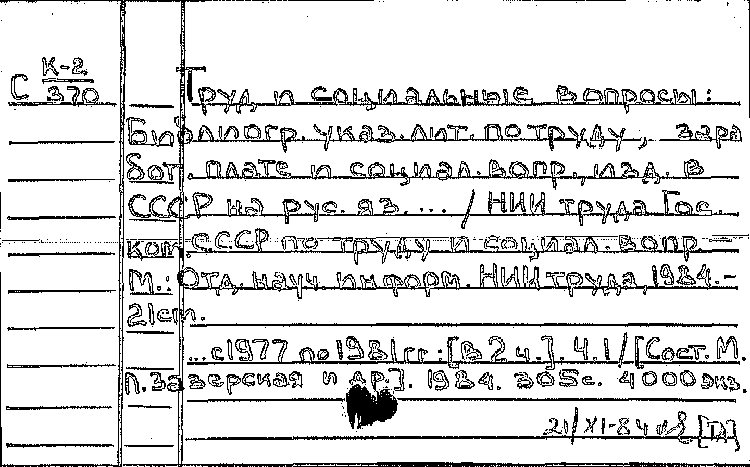 К-2
С 370
Труд и социальные вопросы:
Библиогр. указ. лит. по труду, зара
бот. плате и социал. вопр., изд. в
СССР на рус. яз. ... / НИИ труда Гос.
ком. СССР по труду и социал. вопр. —
М.: Отд. науч. информ. НИИ труда, 1984. –
21 см.
... с 1977 по 1981 гг.: [В 2 ч.]. Ч. 1 / [Сост. М.
П. Зазерская и др.]. 1984. 305 с. 4000 экз.
21/XI-84